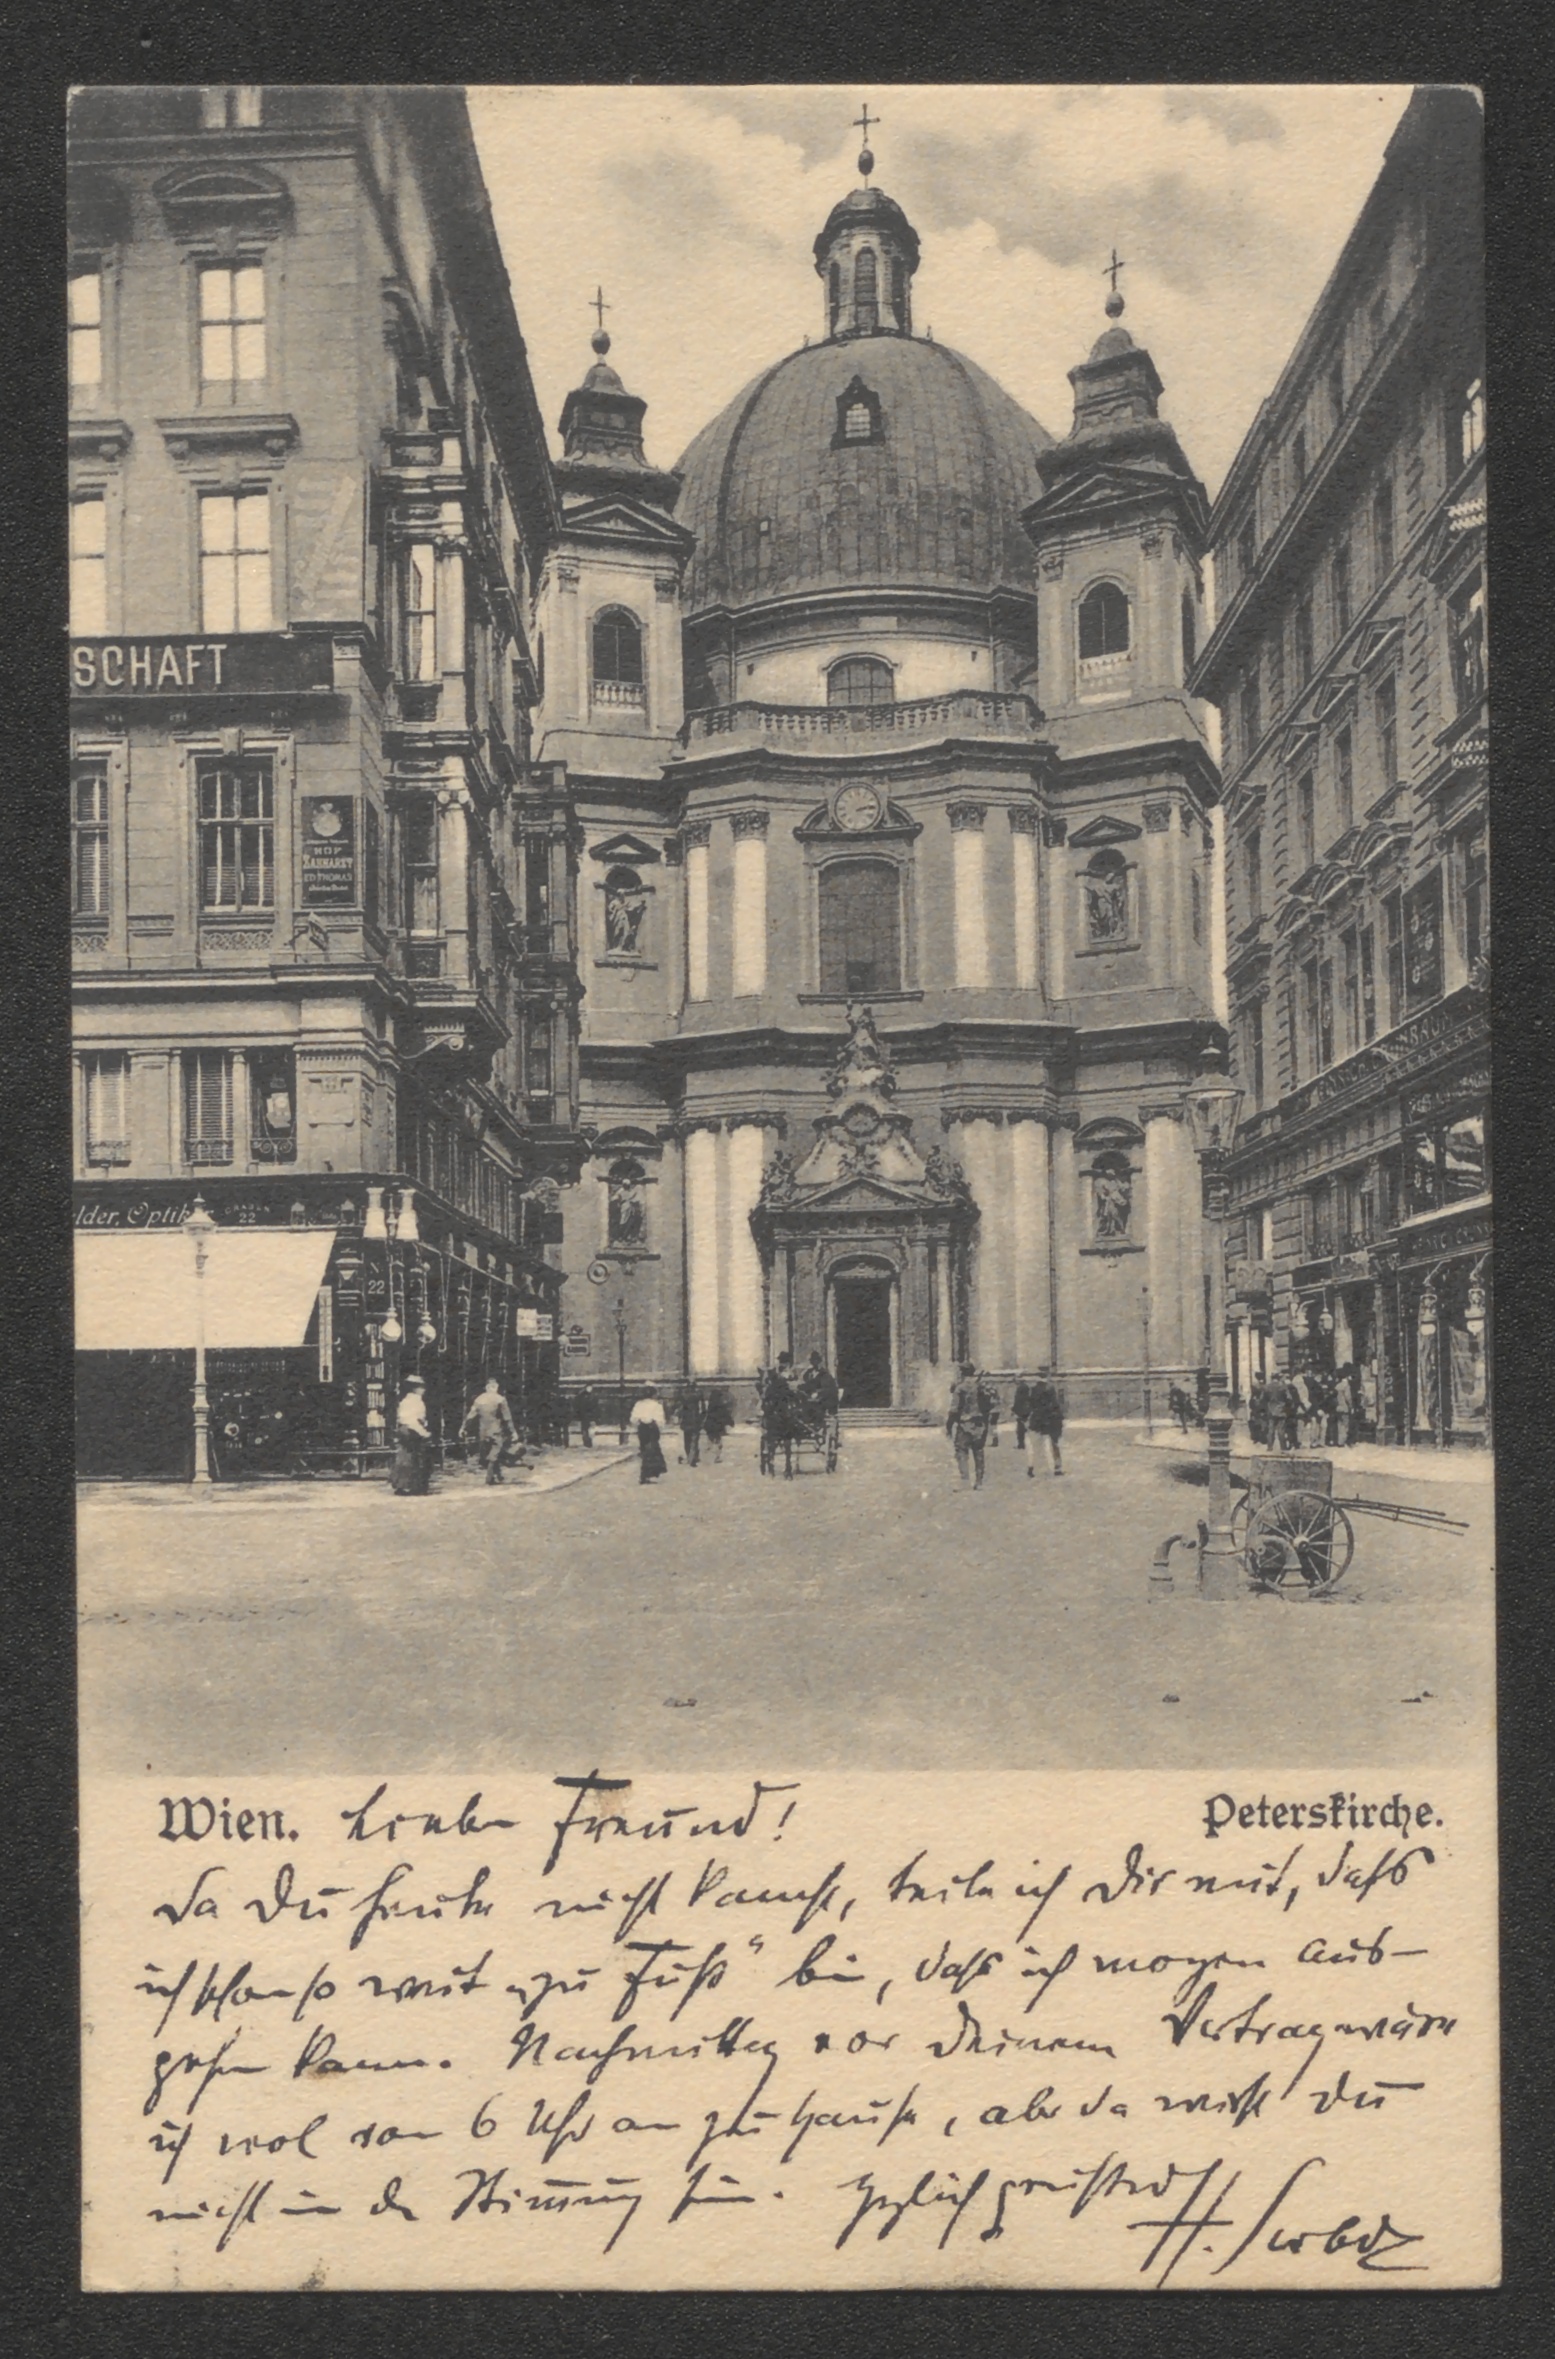 SCHAFT
HOF
ZAHNARZT
ED. THOMAS
lder, Optiker
22
22
Wien. Lieber Freund!
Peterskirche.
Da Du heute nicht kamst, teile ich Dir mit, daß
ich schon so weit „zu Fuß“ bin, daß ich morgen aus-
gehen kann. Nachmittag vor Deinem Vortrag wäre
ich wol von 6 Uhr an zu Hause, aber da wirst Du
nicht in der Stimmung sein. Herzlich grüßend
H.